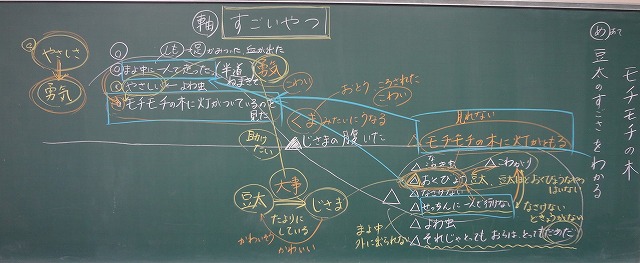 モチモチの木
めあて
豆太のすごさをわかる
軸 すごいやつ
やさしさ
勇気
しも→足かみついた、血が出た
まよ中に一人で走った。(半道
ねまきで
勇気
やさしい ← よわ虫
こわい
モチモチの木に灯がついているのを
見た
おとう、ころされた
こわい
くまみたいにうなる
じさまの腹いた
助け
たい
大事
豆太
じさま
たよりに
している
かわいそう
かわいい
見れない
モチモチの木に灯がともる
なき虫
こわがり
おくびょう豆太
なさけない
せっちんに一人で行けない
よわ虫
それじゃぁとってもおらは、とってもだめだ
まよ中
外に出られない
なさけない